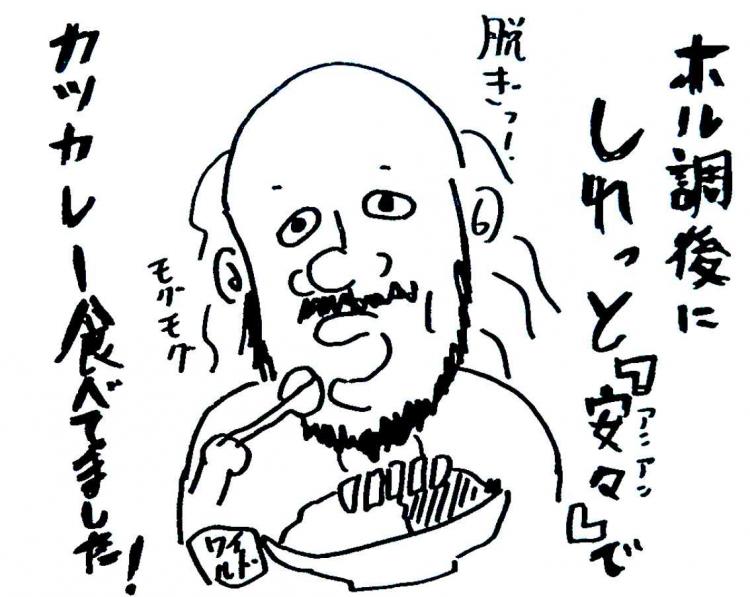 ホル調後に
しれっと『安々』で
アンアン
脱ぎっ!
モグモグ
ワイルド
カツカレー食べてました!